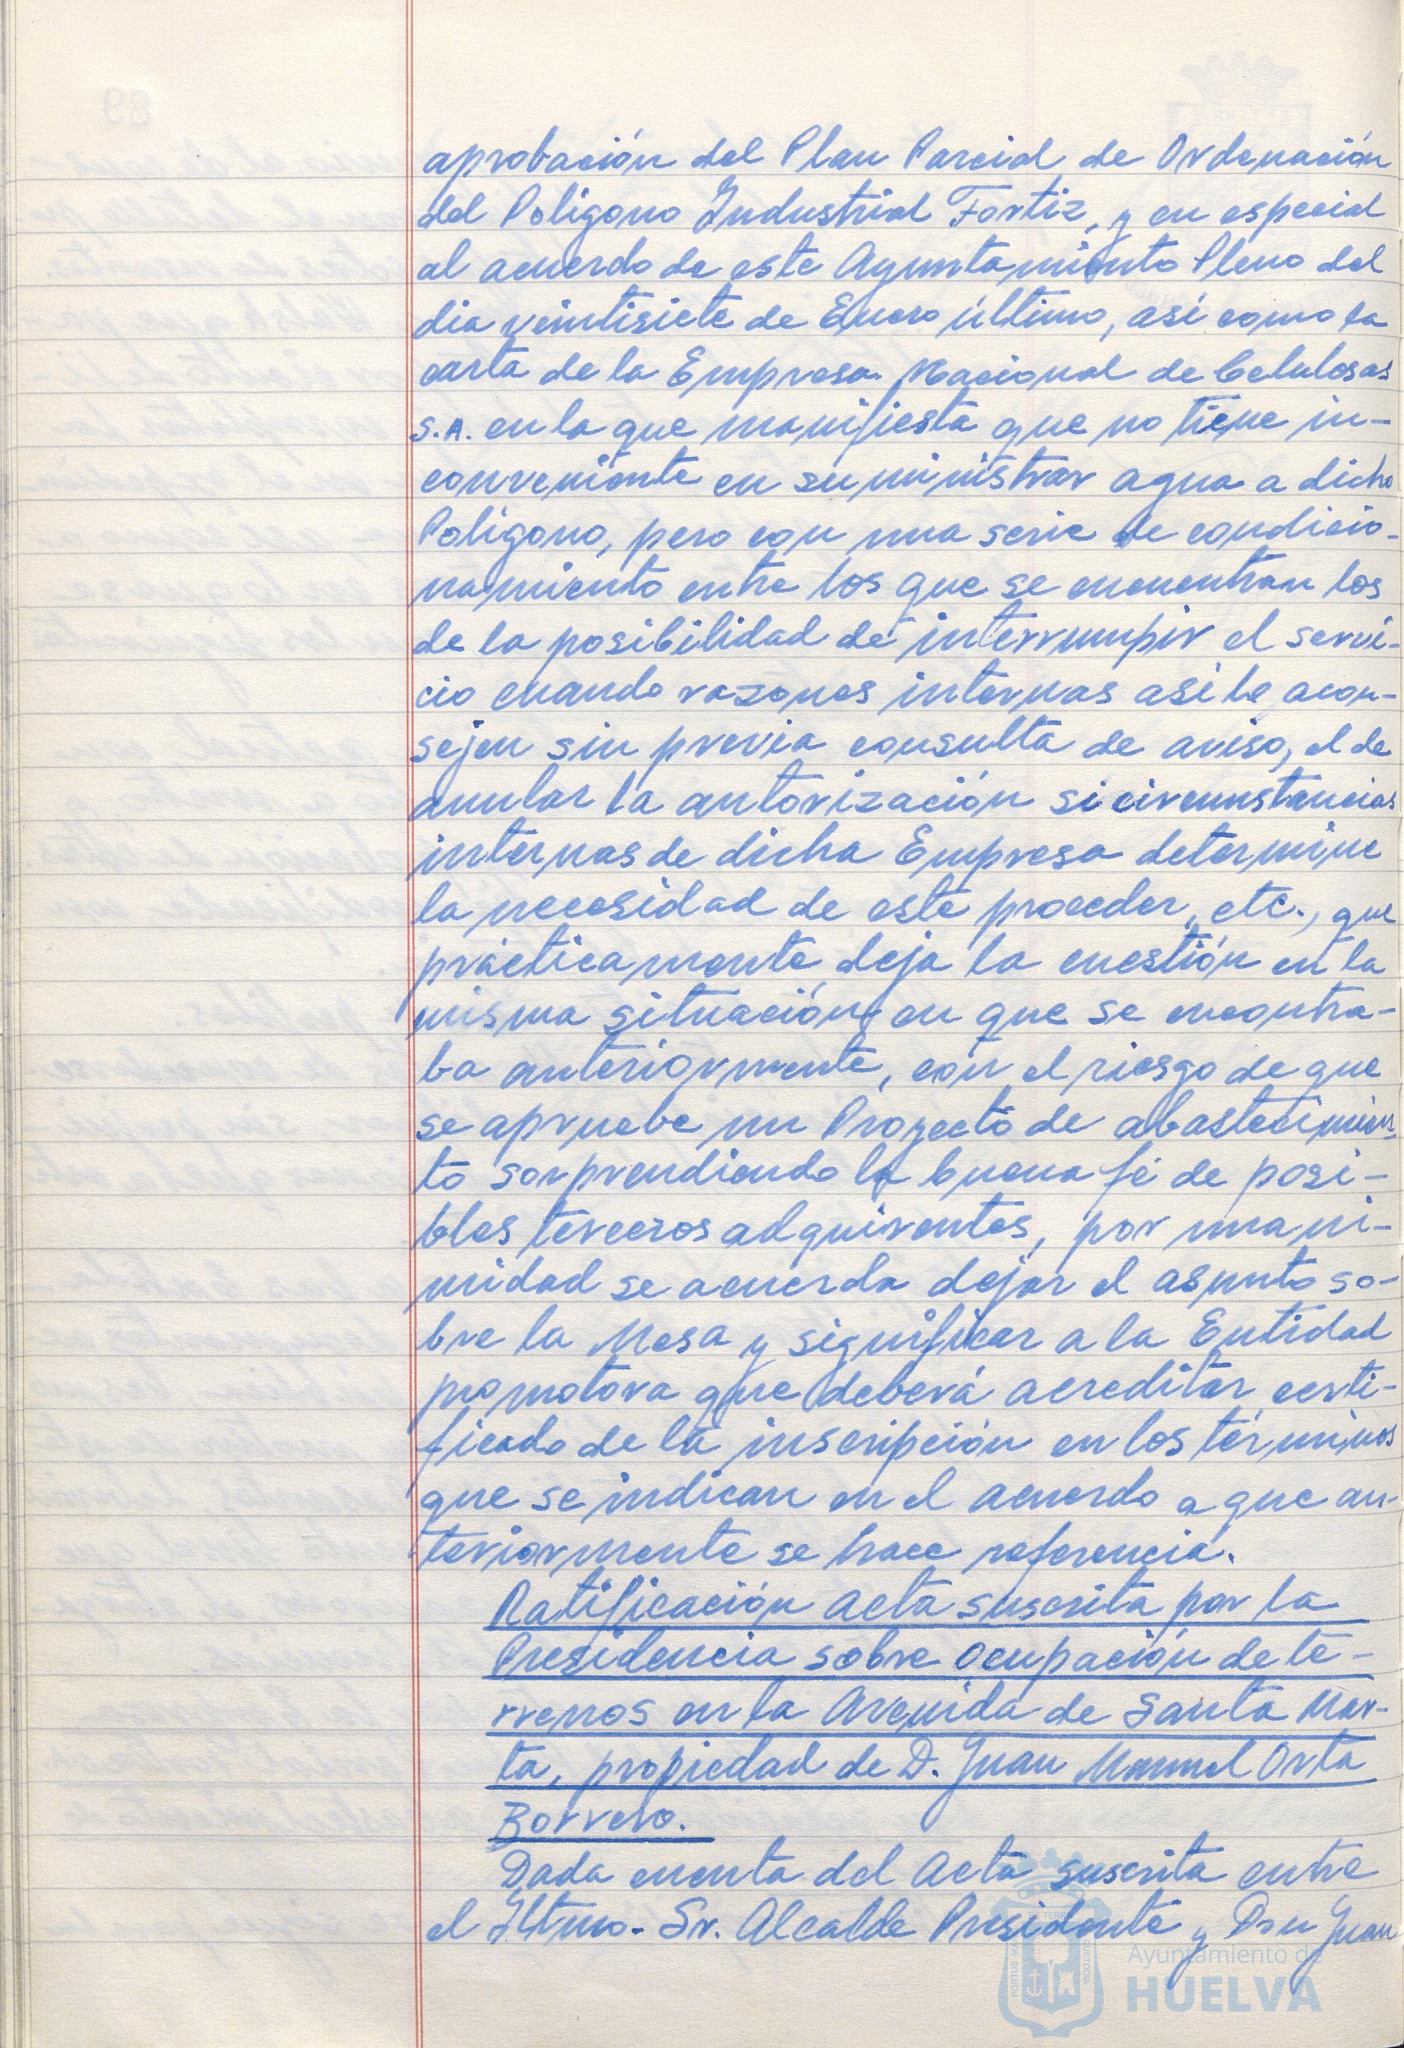 aprobación del Plan Parcial de Ordenación
del Polígono Industrial Fortiz, y en especial
al acuerdo de este Ayuntamiento Pleno del
dia veintisiete de Enero último, así como la
carta de la Empresa Nacional de Celulosas
S.A. en la que manifiesta que no tiene in-
conveniente en suministrar agua a dicho
Polígono, pero con una serie de condicio-
namiento entre los que se encuentran los
de la posibilidad de interrumpir el servi-
cio cuando razones internas así le acon-
sejen sin previa consulta de aviso, el de
anular la autorización si circunstancias
internas de dicha Empresa determine
la necesidad de este proceder, etc., que
prácticamente deja la cuestión en la
misma situación en que se encontra-
ba anteriormente, con el riesgo de que
se apruebe un Proyecto de abastecimien-
to sorprendiendo la buena fé de posi-
bles terceros adquirentes, por unani-
midad se acuerda dejar el asunto so-
bre la Mesa y significar a la Entidad
promotora que deberá acreditar certi-
ficado de la inscripción en los términos
que se indican en el acuerdo a que an-
teriormente se hace referencia.
Ratificación acta suscrita por la
Presidencia sobre ocupación de te-
rrenos en la Avenida de Santa Mar-
ta, propiedad de D. Juan Manuel Orta
Borrero.
Dada cuenta del Acta suscrita entre
el Iltmo. Sr. Alcalde Presidente y Don Juan
Ayuntamiento de
HUELVA